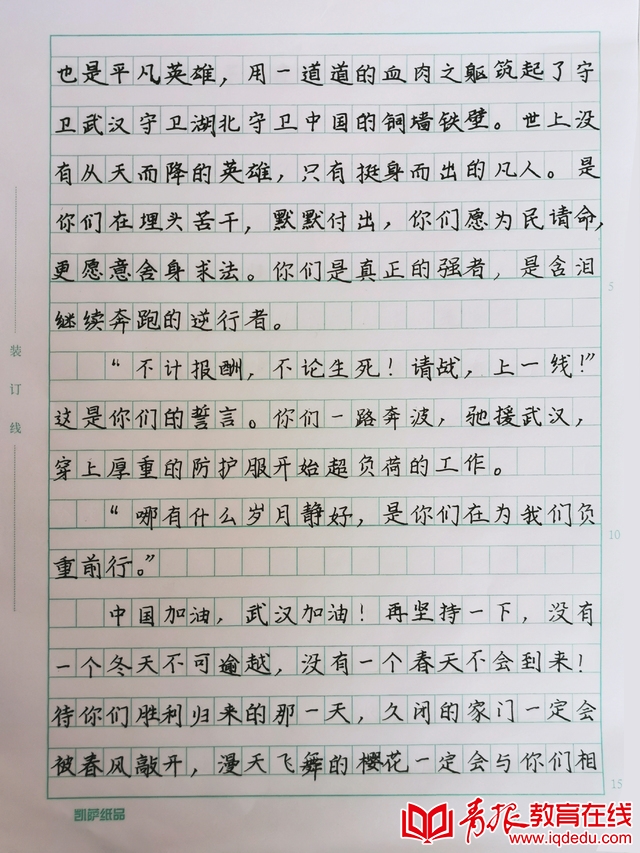 也是平凡英雄，用一道道的血肉之躯筑起了守
卫武汉守卫湖北守卫中国的铜墙铁壁。世上没
有从天而降的英雄，只有挺身而出的凡人。是
你们在埋头苦干，默默付出，你们愿为民请命，
更愿意舍身求法。你们是真正的强者，是含泪
继续奔跑的逆行者。
5
“不计报酬，不论生死！请战，上一线！”
装订线
这是你们的誓言。你们一路奔波，驰援武汉，
穿上厚重的防护服开始超负荷的工作。
“哪有什么岁月静好，是你们在为我们负
10
重前行。”
中国加油，武汉加油！再坚持一下，没有
一个冬天不可逾越，没有一个春天不会到来！
待你们胜利归来的那一天，久闭的家门一定会
被春风敲开，漫天飞舞的樱花一定会与你们相
15
凯萨纸品
青报教育在线
www.iqdedu.com